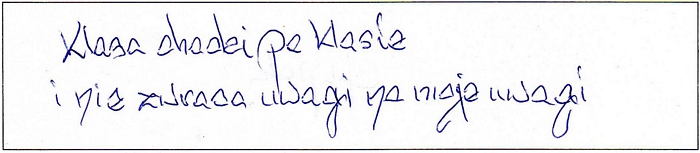 Klasa chodzi po klasie
i nie zwraca uwagi na moje uwagi